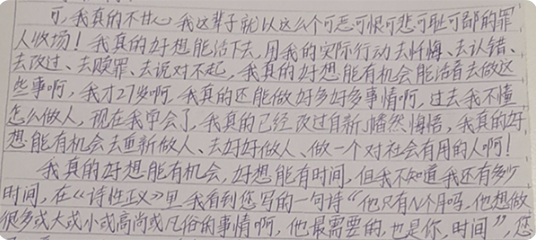 可，我真的不甘心我这辈子就以这么个可恶可恨可悲可耻可鄙的罪
人收场！我真的好想能活下去，用我的实际行动去忏悔、去认错、
去改过、去赎罪、去说对不起，我真的好想能有机会能活着去做这
些事啊，我才27岁啊，我真的还能做好多好多事情啊，过去我不懂
怎么做人，现在我学会了，我真的已经改过自新、幡然悔悟，我真的好
想能有机会去重新做人、去好好做人、做一个对社会有用的人啊！
我真的好想能有机会，好想能有时间，但我不知道我还有多少
时间，在《诗性正义》里我看到您写的一句诗“他只有N个月吗，他想做
很多或大或小或高尚或凡俗的事情啊，他最需要的，也是你，时间”，您